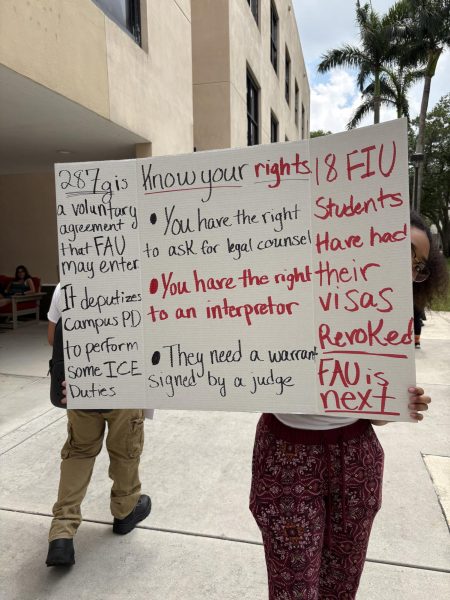 287g is
a voluntary
agreement
that FAU
may enter
It deputizes
Campus PD
to perform
some ICE
Duties
Know your rights
• You have the right
to ask for legal counsel
• You have the right
to an interpretor
• They need a warrant
signed by a judge
18 FIU
Students
Have had
their
visas
Revoked
FAU is
next